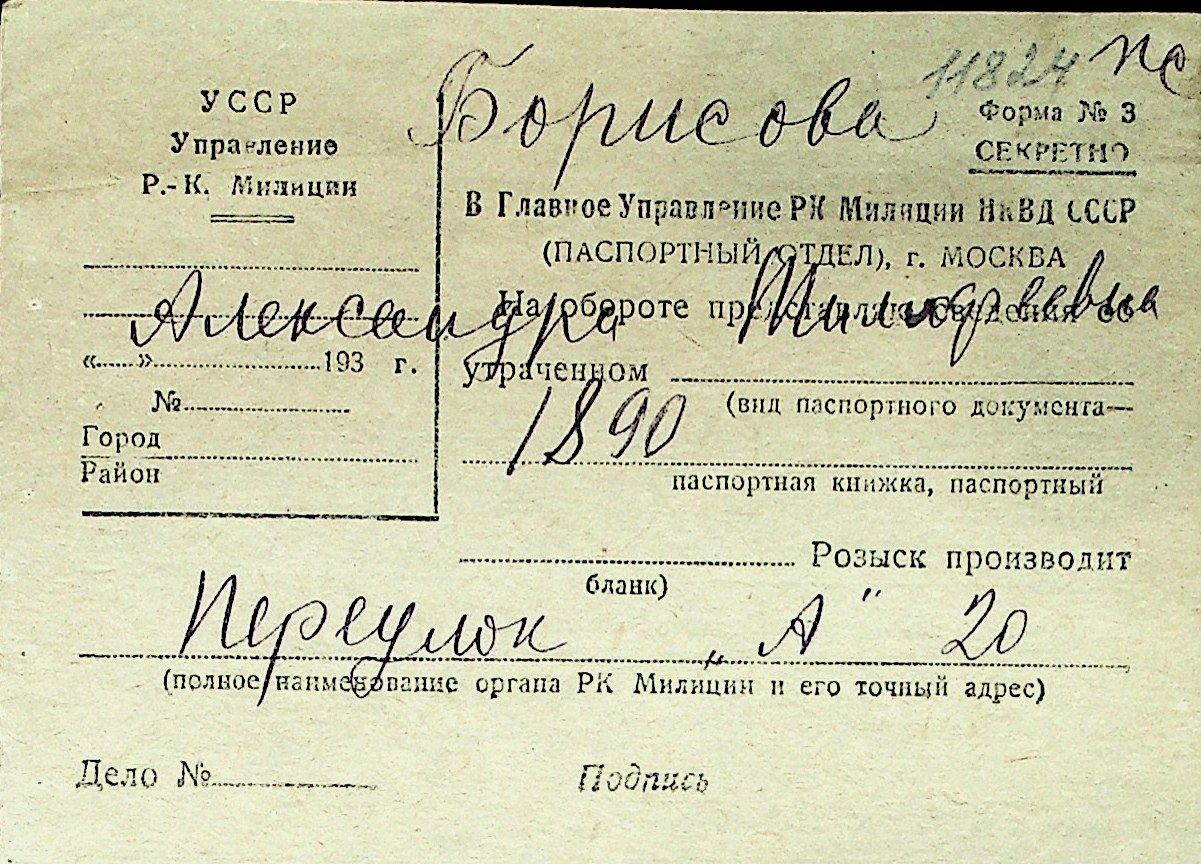 Борисова
11824 пс
УССР
Управление
Р.-К. Милиции
Форма № 3
СЕКРЕТНО
В Главное Управление РК Милиции НкВД СССР
(ПАСПОРТНЫЙ ОТДЕЛ), г. МОСКВА
Александра
На обороте представляю сведения об
«......»..............................193 г.
утраченном
№
1890
(вид паспортного документа—
Город
Район
паспортная книжка, паспортный
Розыск производит
бланк)
Переулок „А" 20
(полное наименование органа РК Милиции и его точный адрес)
Дело №
Подпись